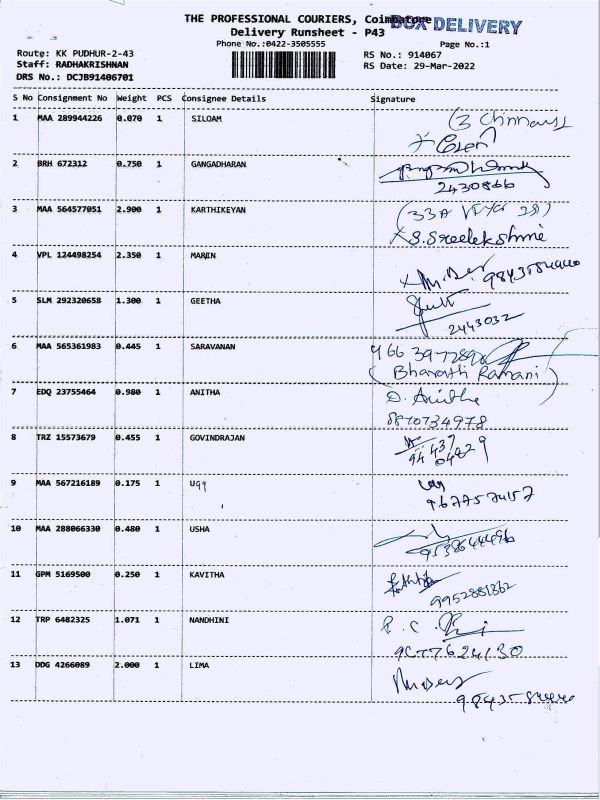 THE PROFESSIONAL COURIERS, Coimbatore
BOX DELIVERY
Delivery Runsheet - P43
Phone No.:0422-3505555
Page No.:1
Route: KK PUDHUR-2-43
RS No.: 914067
Staff: RADHAKRISHNAN
RS Date: 29-Mar-2022
DRS No.: DCJB91406701
S No Consignment No Weight PCS Consignee Details Signature
1 MAA 289944226 0.070 1 SILOAM
2 BRH 672312 0.750 1 GANGADHARAN
2430866
3 MAA 564577051 2.900 1 KARTHIKEYAN
S.Sreelekshmi
4 VPL 124498254 2.350 1 MARIN
5 SLM 292320658 1.300 1 GEETHA
2443032
6 MAA 565361983 0.445 1 SARAVANAN
(Bharath Ramani)
7 EDQ 23755464 0.980 1 ANITHA
D. Anitha
8870734978
8 TRZ 15573679 0.455 1 GOVINDRAJAN
9 MAA 567216189 0.175 1
10 MAA 288066330 0.480 1 USHA
11 GPM 5169500 0.250 1 KAVITHA
9952881862
12 TRP 6482325 1.071 1 NANDHINI
13 DDG 4266089 2.000 1 LIMA